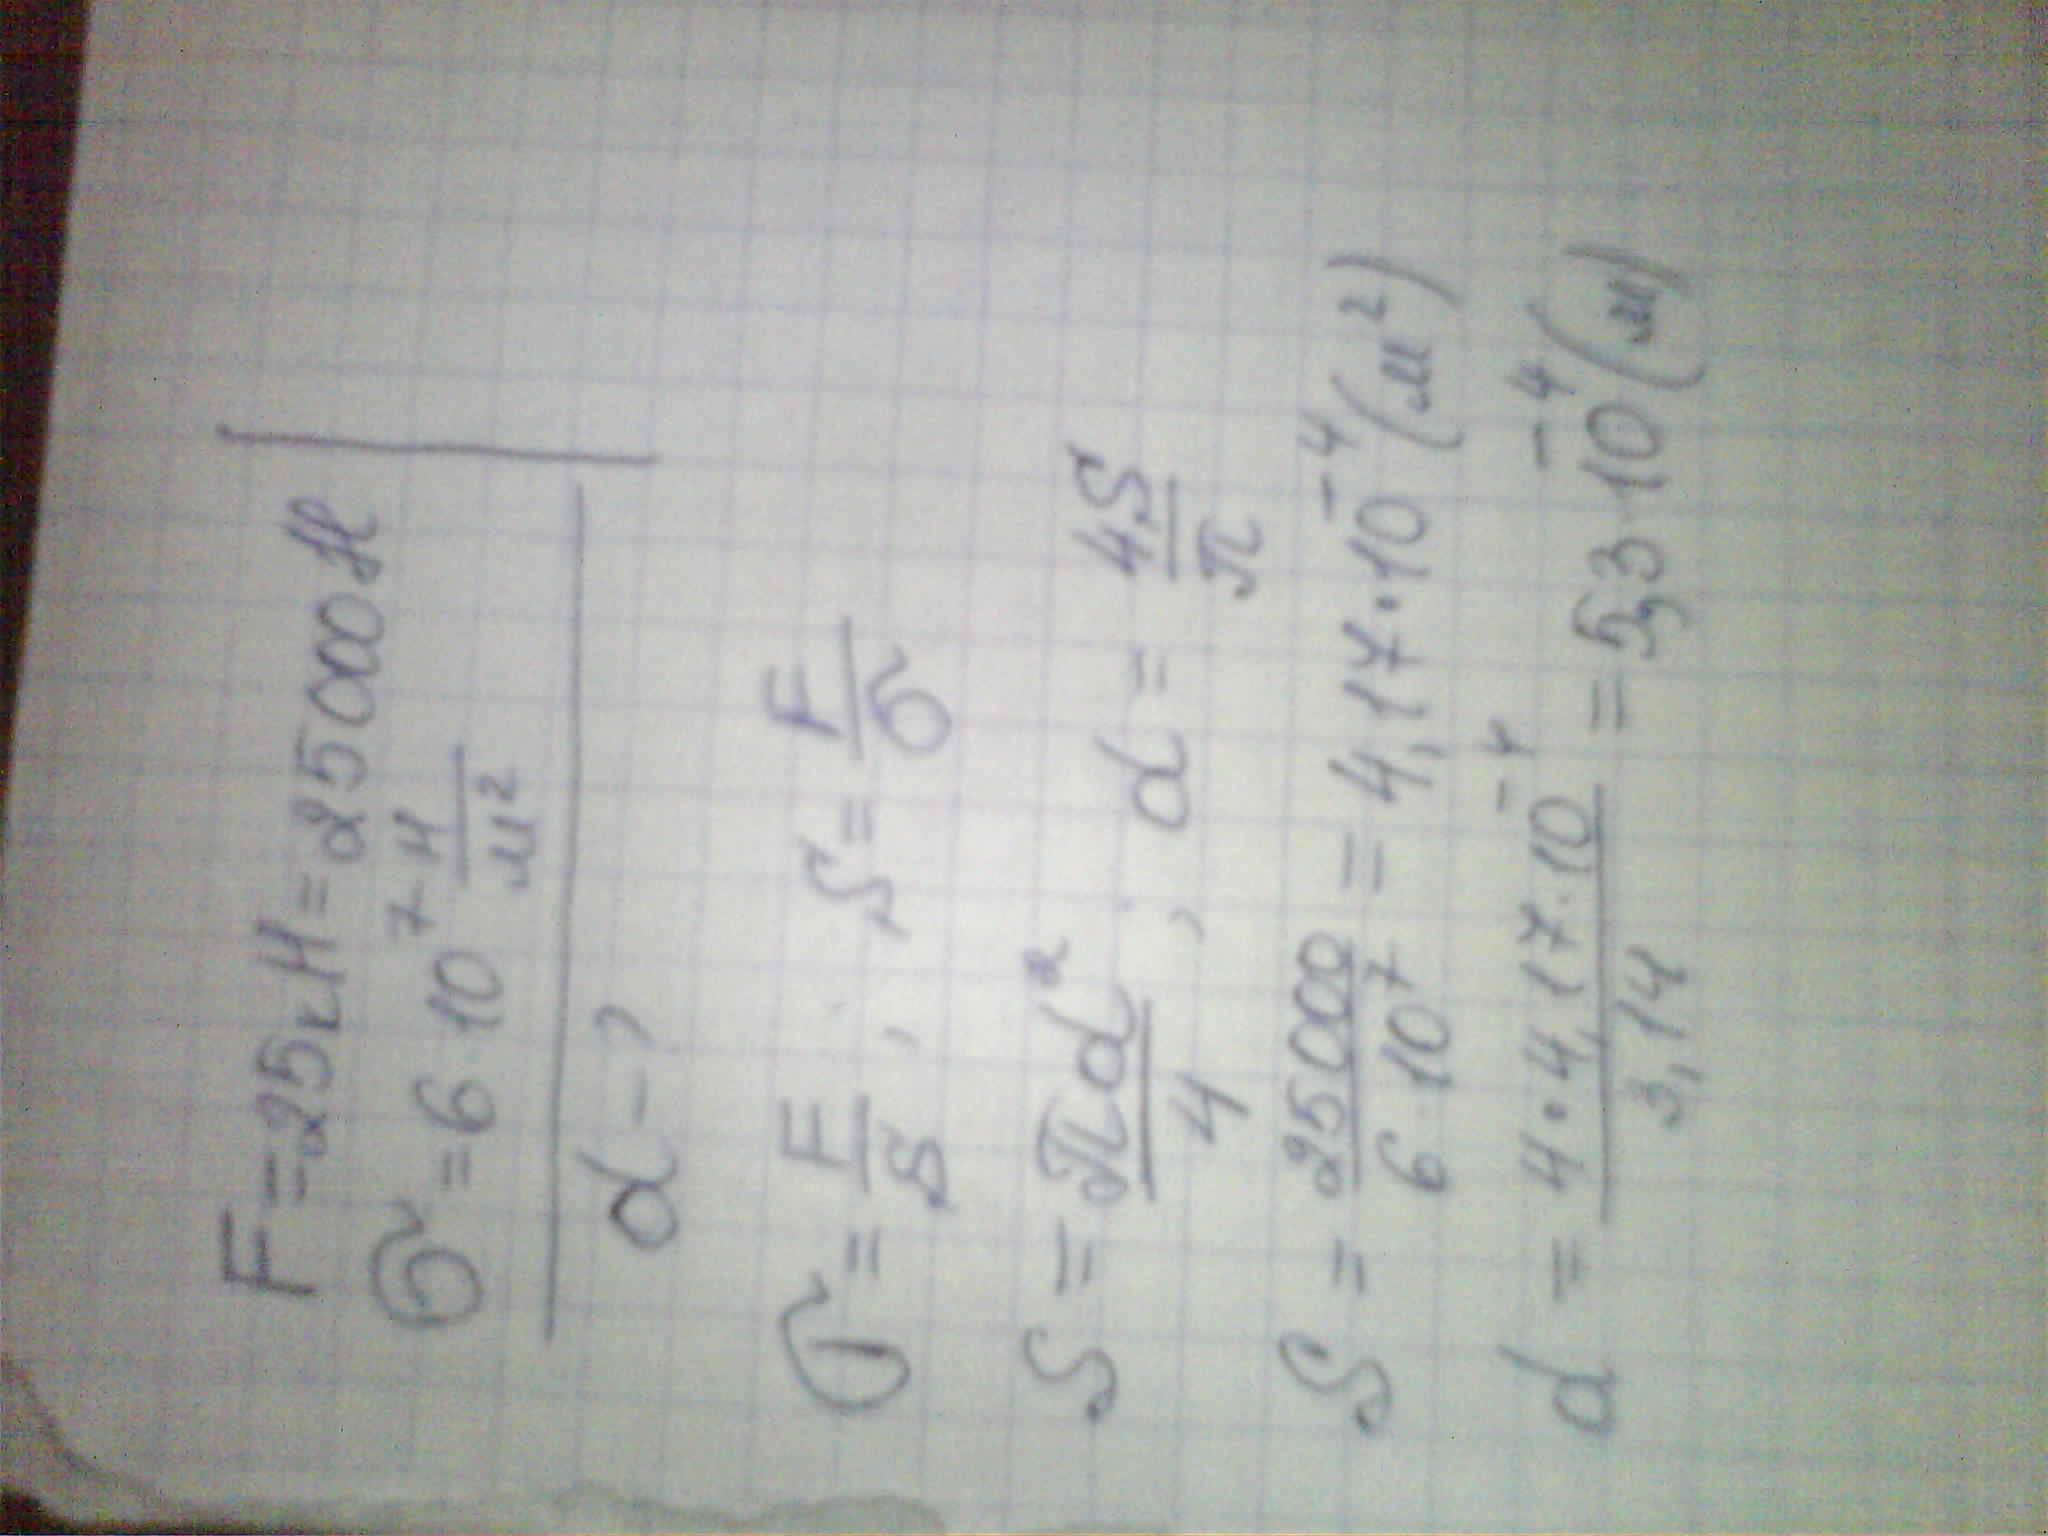 F=25кН=25000Н
σ=6·10⁷ Н/м²
d-?
σ=F/S, S=F/σ
S=πd²/4, d=4S/π
S=25000/6·10⁷=4,17·10⁻⁴(м²)
d=4·4,17·10⁻⁴/3,14=5,3·10⁻⁴(м)